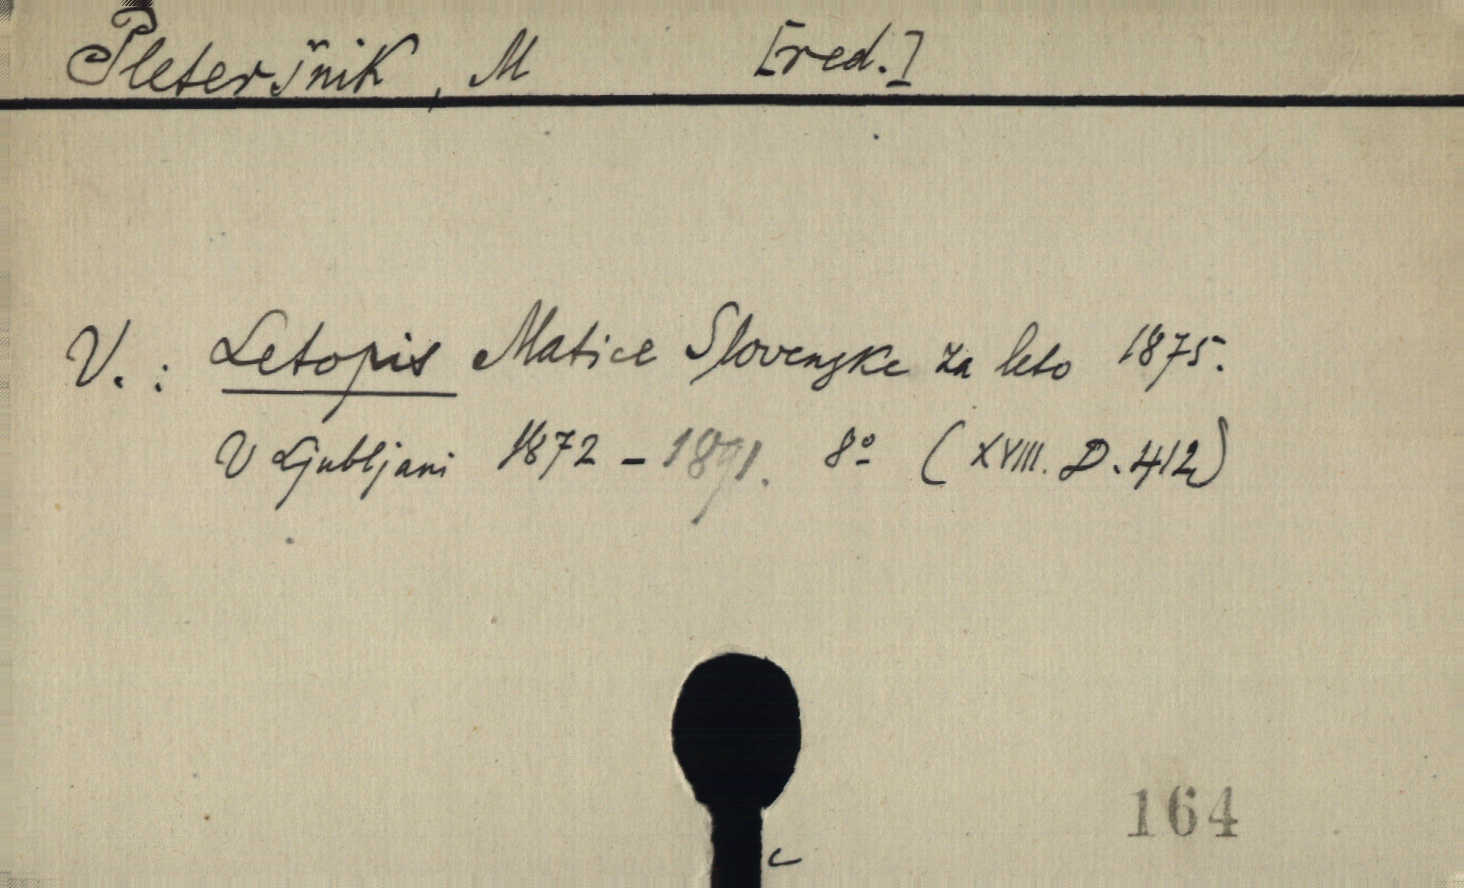 Pleteršnik, M [red.]
V.: Letopis Matice Slovenske za leto 1875.
V Ljubljani 1872 - 1891. 8º (XVIII. D. 412)
164